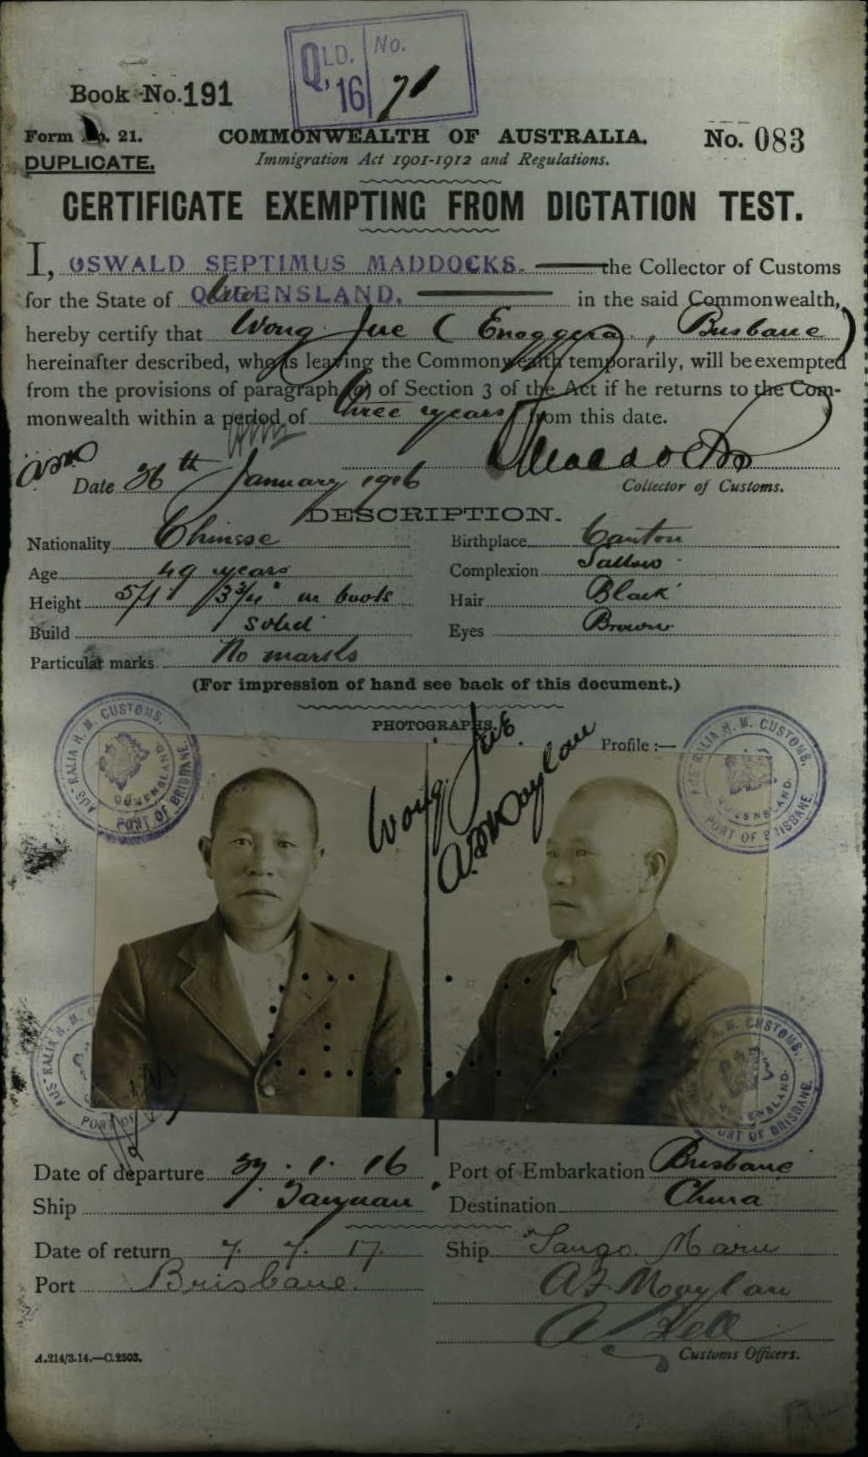 QLD. No.
'16 71
Book No. 191
Form No. 21.
COMMONWEALTH OF AUSTRALIA.
No. 083
DUPLICATE.
Immigration Act 1901-1912 and Regulations.
CERTIFICATE EXEMPTING FROM DICTATION TEST.
I, OSWALD SEPTIMUS MADDOCKS. the Collector of Customs
for the State of QUEENSLAND, in the said Commonwealth,
hereby certify that Wong Jue (Enoggera, Brisbane)
hereinafter described, who is leaving the Commonwealth temporarily, will be exempted
from the provisions of paragraph (a) of Section 3 of the Act if he returns to the Com-
monwealth within a period of three years from this date.
Maddocks
Date 26th January 1916
Collector of Customs.
DESCRIPTION.
Nationality Chinese Birthplace Canton
Age 49 years Complexion Sallow
Height 5/1 in boots Hair Black
Build Solid Eyes Brown
Particular marks No marks
(For impression of hand see back of this document.)
PHOTOGRAPHS.
Profile :—
Wong Jue
Moylan
AUSTRALIA H. M. CUSTOMS. QUEENSLAND. PORT OF BRISBANE
AUSTRALIA H. M. CUSTOMS. QUEENSLAND. PORT OF BRISBANE
AUSTRALIA H. M. PORT OF
H. M. CUSTOMS. QUEENSLAND. PORT OF BRISBANE
Date of departure 29.1.16 Port of Embarkation Brisbane
Ship Taiyuan Destination China
Date of return 7. 7. 17. Ship Tango Maru
Port Brisbane. Moylan
A Bell
A.214/3.14.—C.2503. Customs Officers.